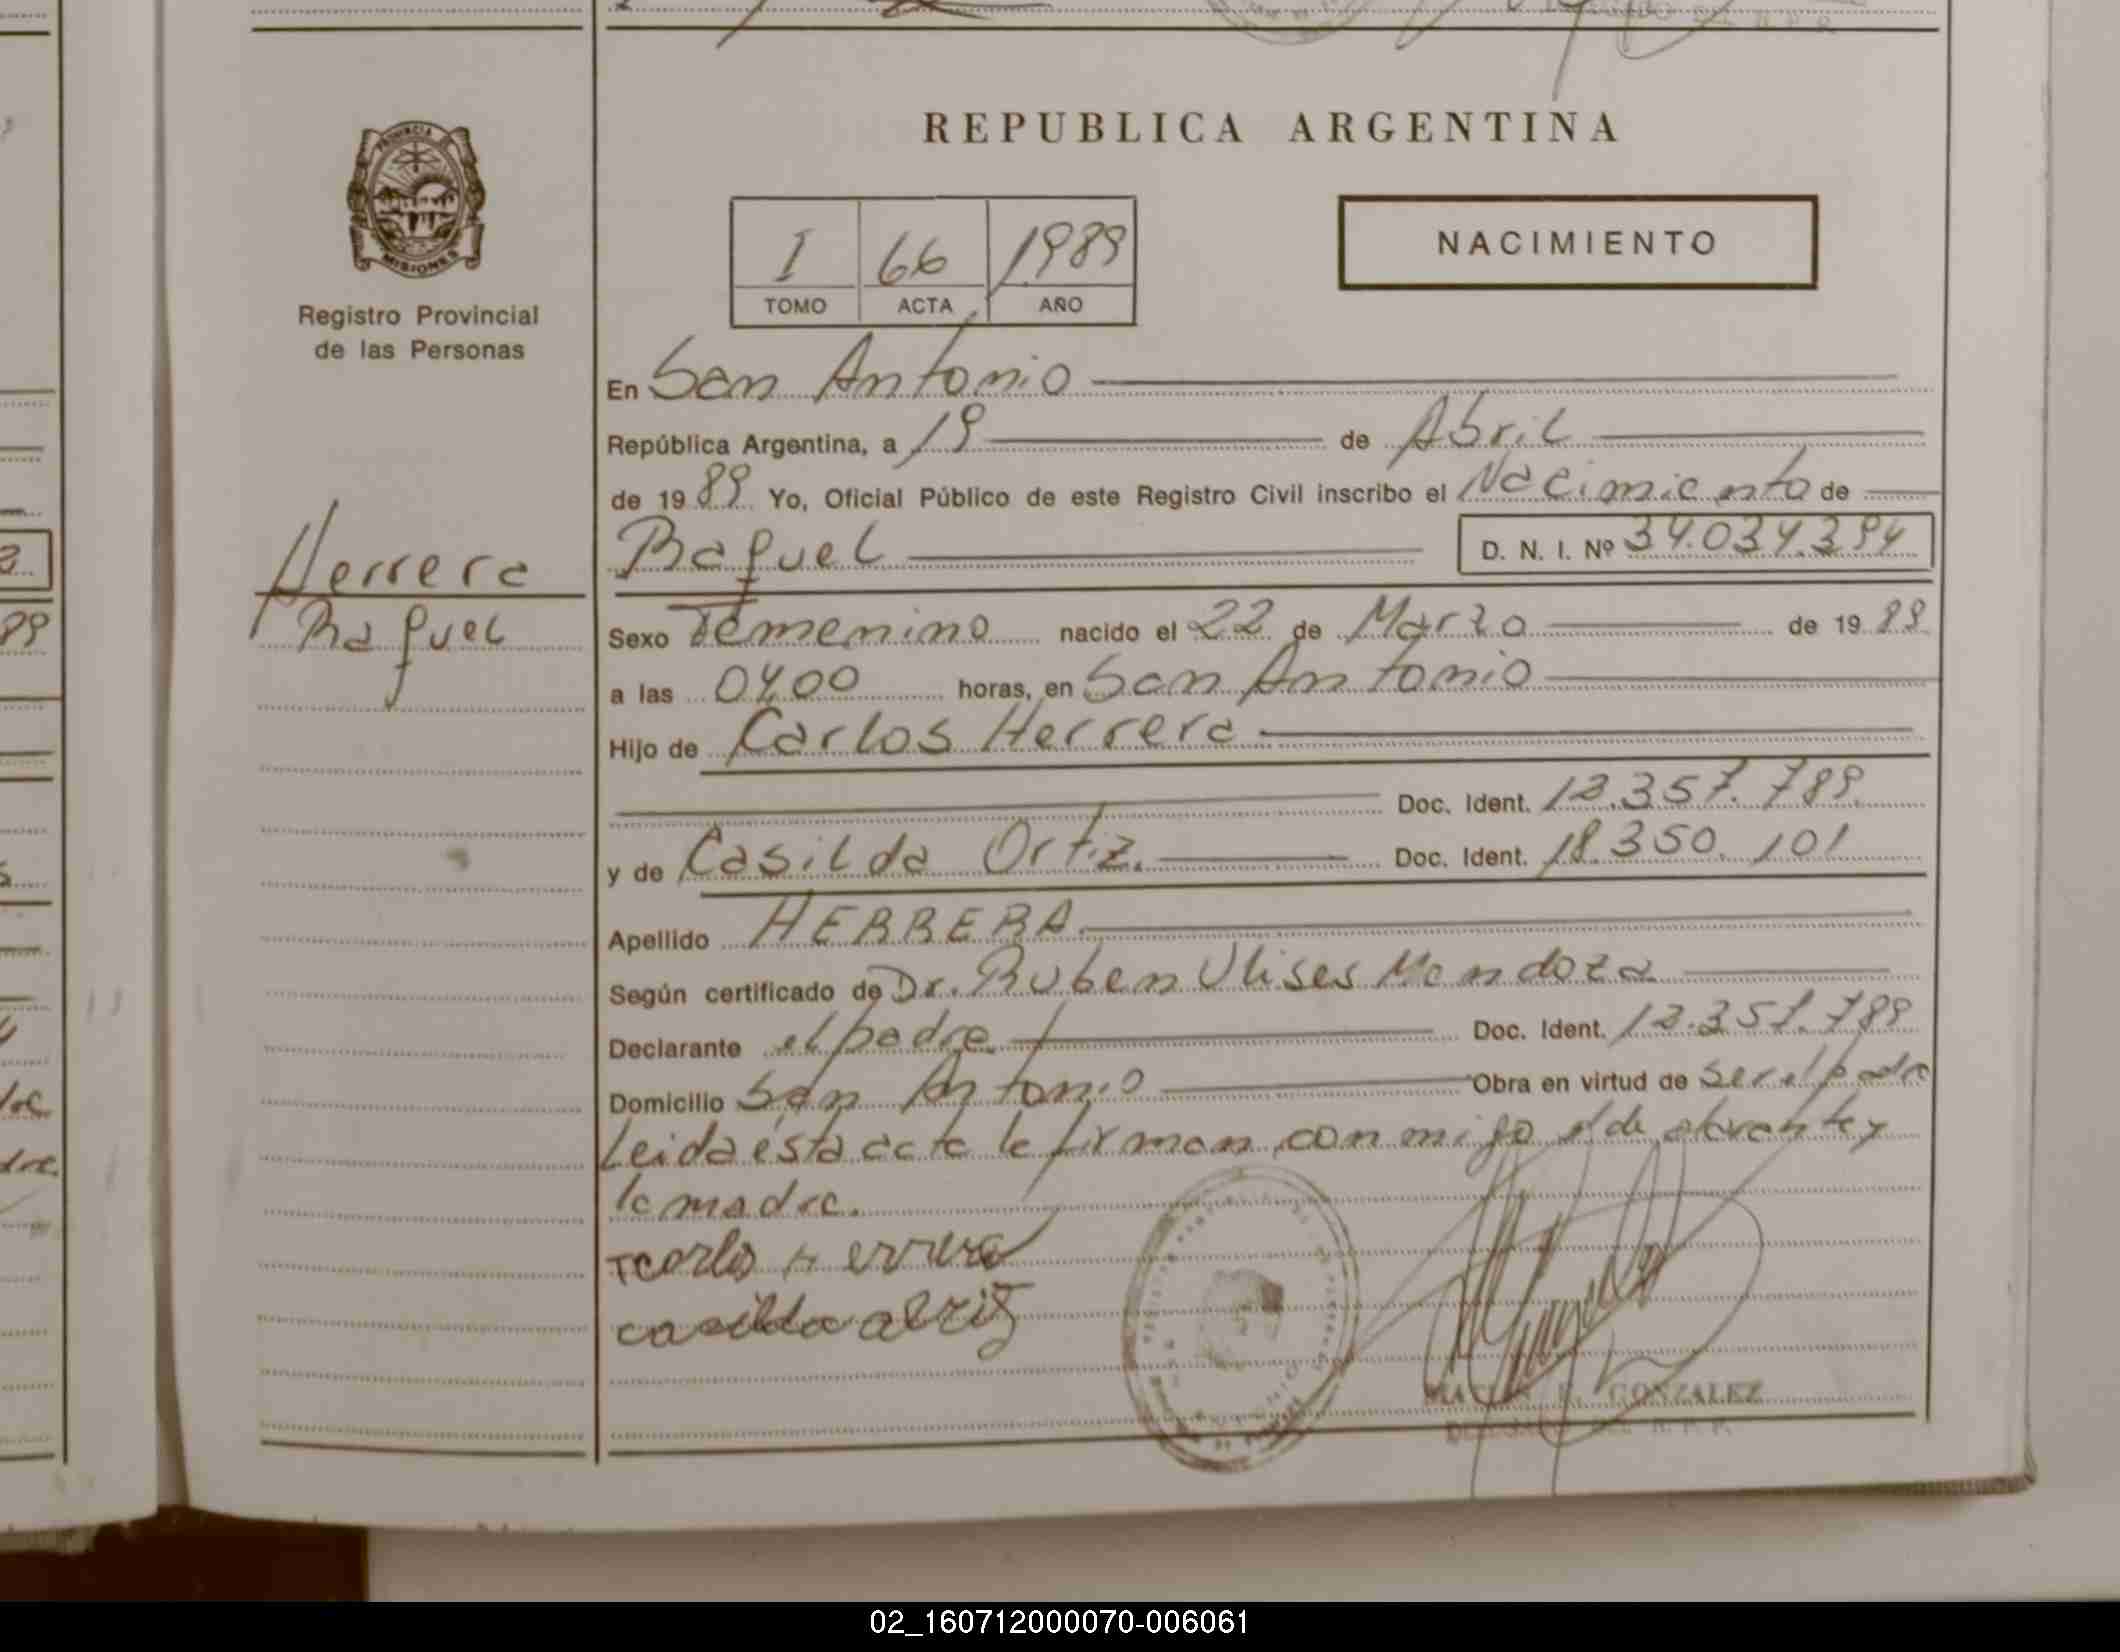 REPUBLICA ARGENTINA
PROVINCIA
MISIONES
Registro Provincial
de las Personas
I 66 1989
TOMO ACTA AÑO
NACIMIENTO
En San Antonio
República Argentina, a 19 de Abril
de 19 89 Yo, Oficial Público de este Registro Civil inscribo el Nacimiento de
Raquel D. N. I. Nº 34.034.394
Herrera
Raquel
Sexo Femenino nacido el 22 de Marzo de 19 89
a las 0400 horas, en San Antonio
Hijo de Carlos Herrera
Doc. Ident. 12.357.789
y de Casilda Ortiz. Doc. Ident. 18.350.101
Apellido HERRERA
Según certificado de Dr. Ruben Ulises Mendoza
Declarante el padre Doc. Ident. 12.357.789
Domicilio San Antonio Obra en virtud de ser el padre
Leida ésta acta la firman conmigo el declarante y
la madre.
GONZALEZ
DEL R. P. P.
89
02_160712000070-006061